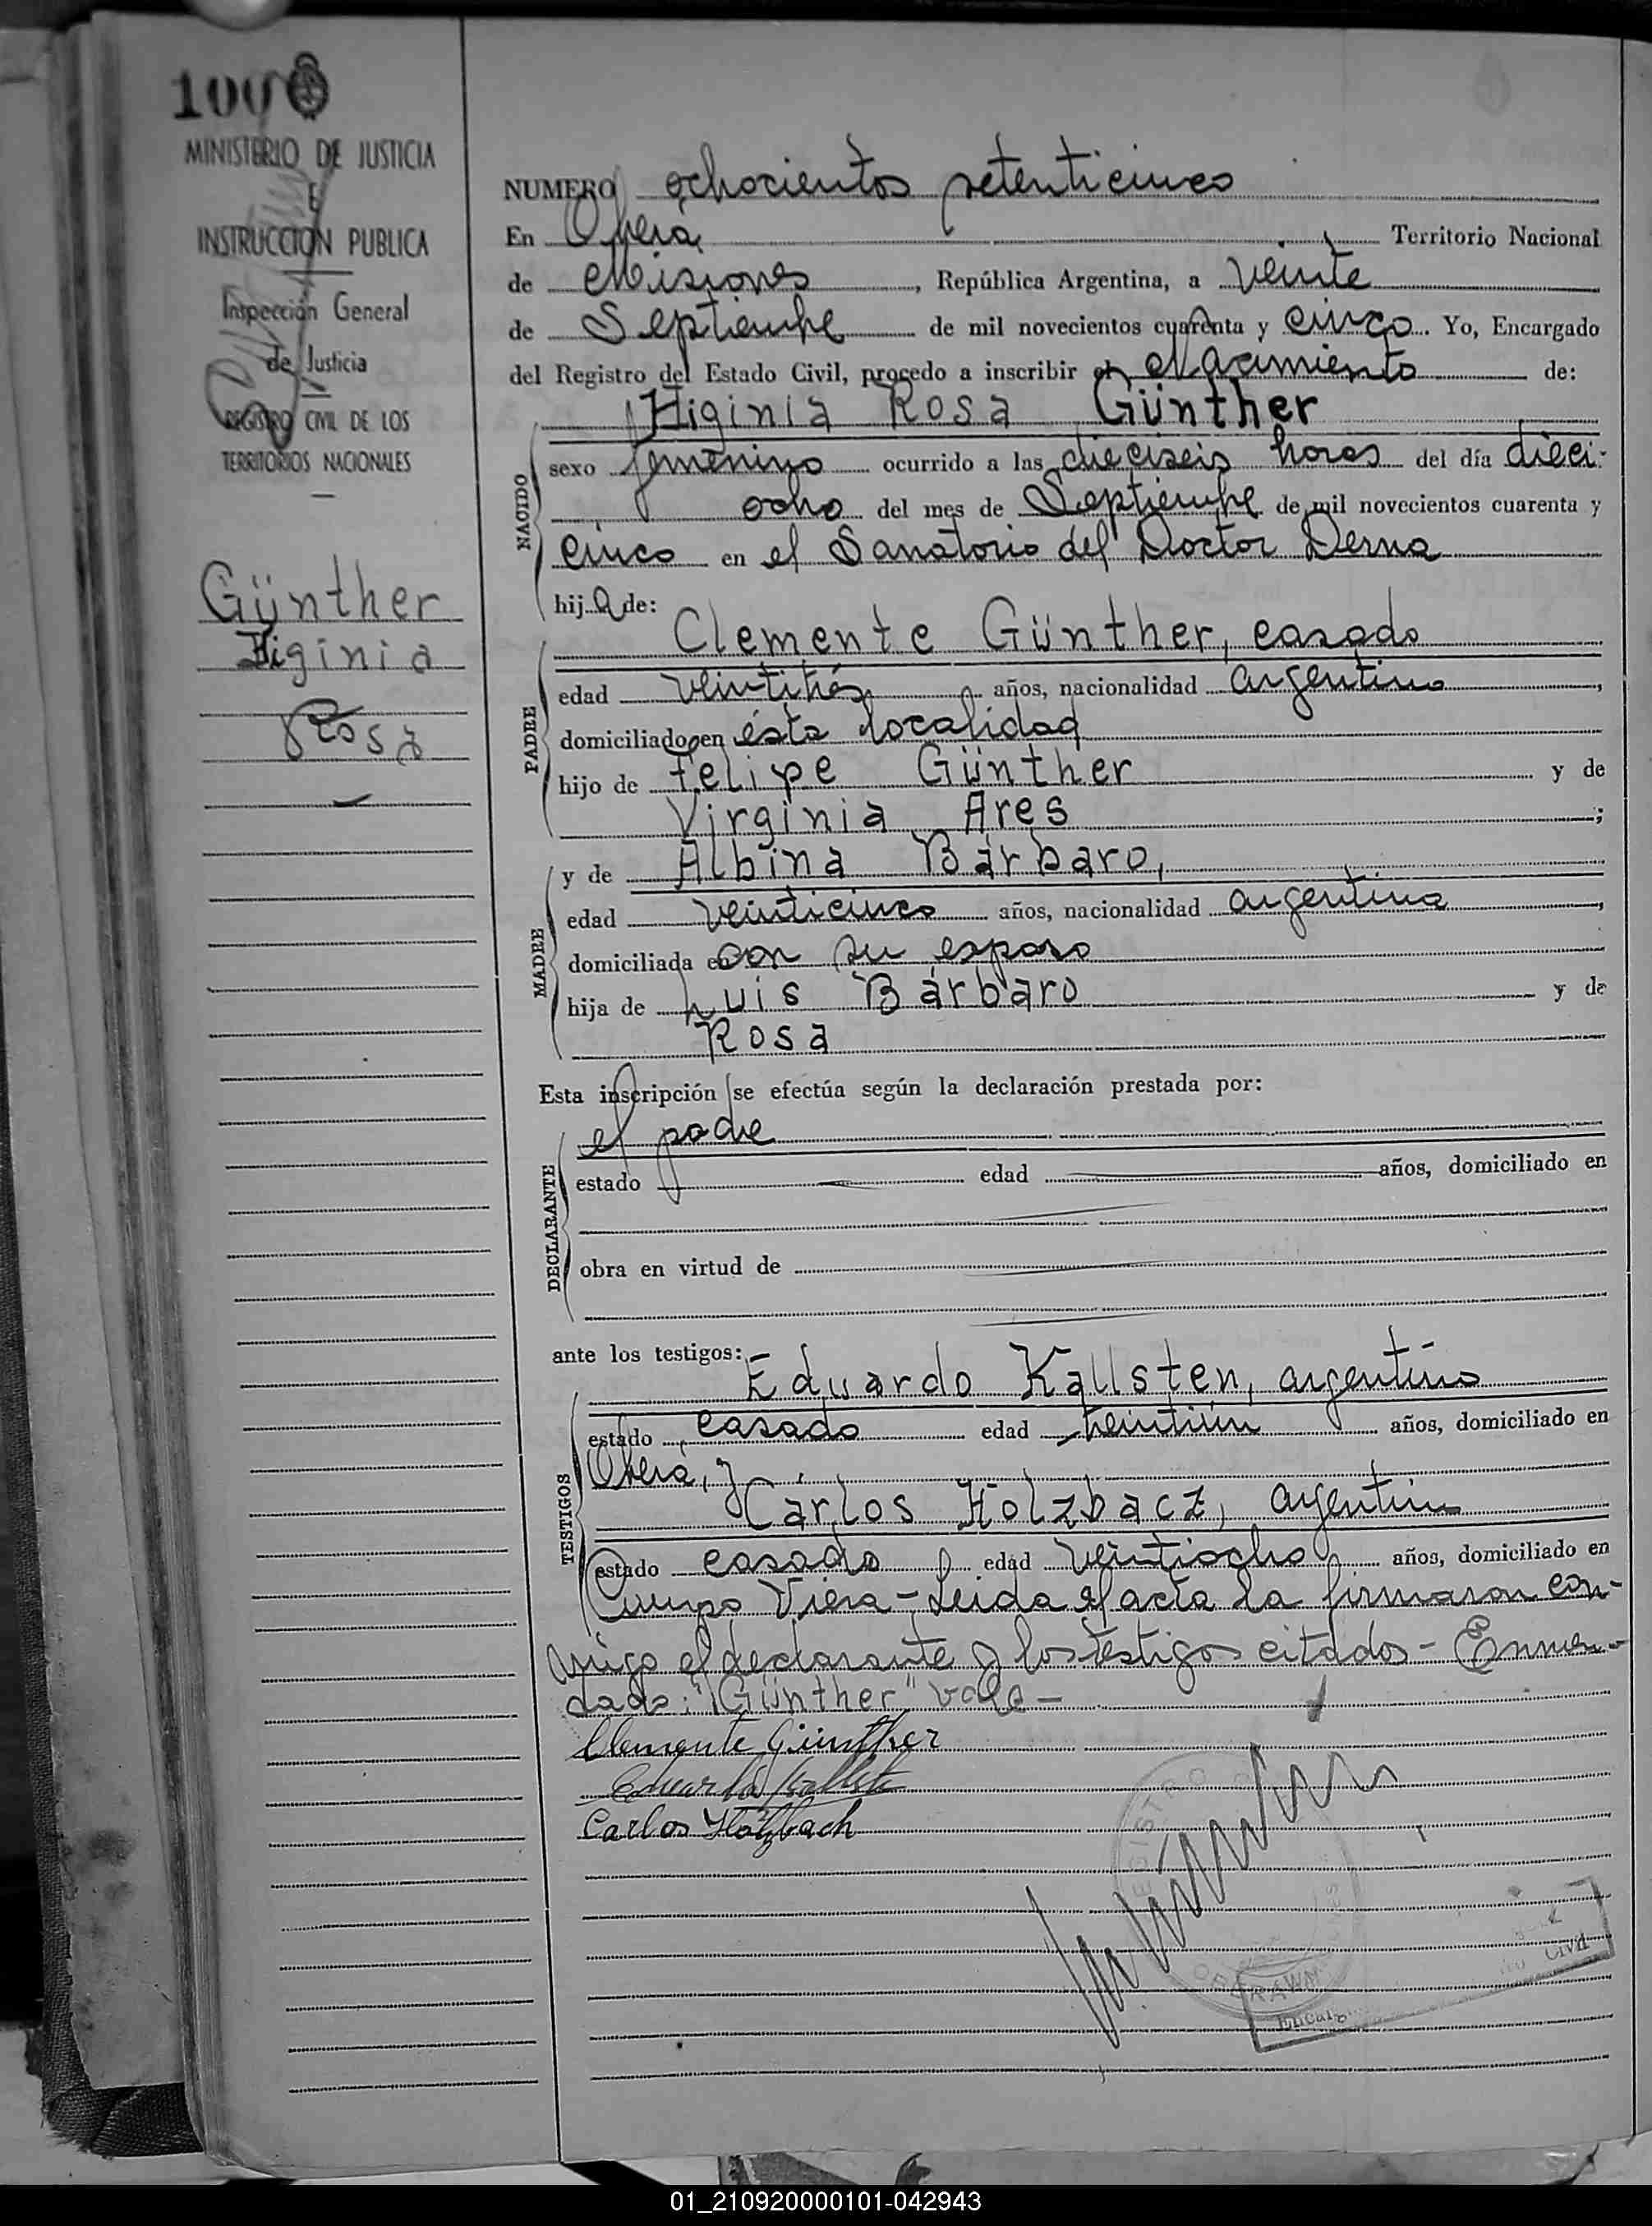 100
MINISTERIO DE JUSTICIA
E
INSTRUCCION PUBLICA
Inspección General
de Justicia
REGISTRO CIVIL DE LOS
TERRITORIOS NACIONALES
Günther
Higinia
Rosa
NUMERO ochocientos setenticinco
En Oberá, Territorio Nacional
de Misiones, República Argentina, a veinte
de Septiembre de mil novecientos cuarenta y cinco. Yo, Encargado
del Registro del Estado Civil, procedo a inscribir el Nacimiento de:
Higinia Rosa Günther
NACIDO
sexo femenino ocurrido a las dieciseis horas del día dieci-
ocho del mes de Septiembre de mil novecientos cuarenta y
cinco en el Sanatorio del Doctor Derna
hija de:
Clemente Günther, casado
PADRE
edad veintitrés años, nacionalidad argentino,
domiciliado en ésta localidad
hijo de Felipe Günther y de
Virginia Ares;
MADRE
y de Albina Bárbaro,
edad veinticinco años, nacionalidad argentina,
domiciliada con su esposo
hija de Luis Bárbaro y de
Rosa
Esta inscripción se efectúa según la declaración prestada por:
DECLARANTE
el padre
estado edad años, domiciliado en
obra en virtud de
ante los testigos:
TESTIGOS
Eduardo Kallsten, argentino
estado casado edad treintiún años, domiciliado en
Oberá, y
Carlos Holzbacz, argentino
estado casado edad veintiocho años, domiciliado en
Campo Viera - Leida el acta la firmaron con-
migo el declarante y los testigos citados - Enmen-
dado: "Günther" vale -
Clemente Günther
Eduardo Kallsten
Carlos Holzbach
REGISTRO
OBERA
Encar
Civil
01_210920000101-042943